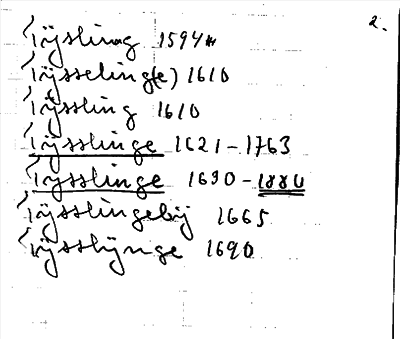 2.
Tÿssling 1594
Tÿsseling(e) 1610
Tÿssling 1610
Tÿsslinge 1621-1763
Tysslinge 1630-1880
Tÿsslingebÿ 1665
Tÿsslÿnge 1690